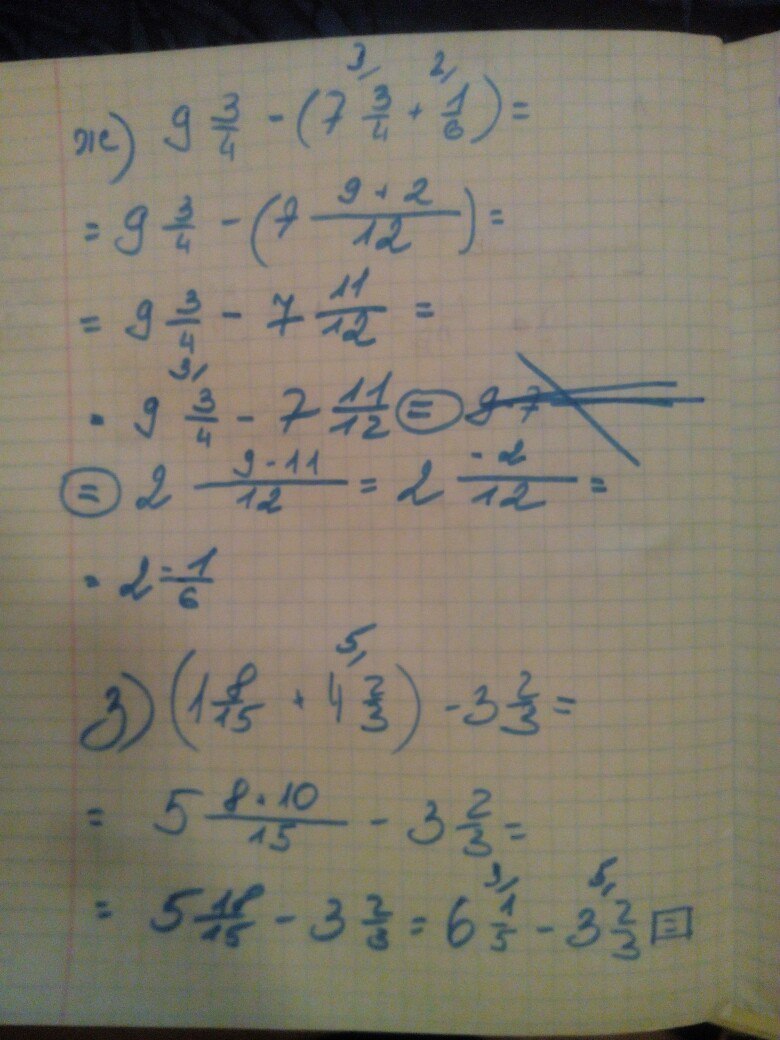 ж) 9 3/4 - (7 3/4 + 1/6) = 3, 2,
= 9 3/4 - (7 (9 + 2)/12) =
= 9 3/4 - 7 11/12 =
= 9 3/4 - 7 11/12 = 9-7 3,
= 2 (9 - 11)/12 = 2 (-2)/12 =
= 2 -1/6
з) (1 8/15 + 4 2/3) - 3 2/3 = 5,
= 5 (8 + 10)/15 - 3 2/3 =
= 5 18/15 - 3 2/3 = 6 1/5 - 3 2/3 = 3, 5,